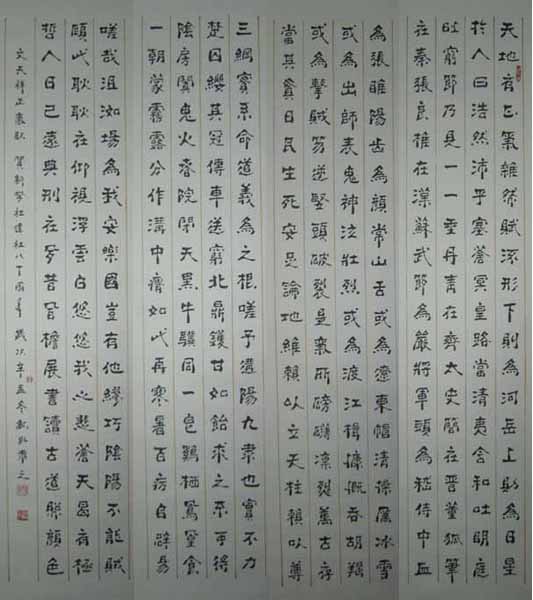 天地有正氣雜然賦流形下則為河岳上則為日星
於人曰浩然沛乎塞蒼冥皇路當清夷含和吐明庭
時窮節乃見一一垂丹青在齊太史簡在晉董狐筆
在秦張良椎在漢蘇武節為嚴將軍頭為嵇侍中血
為張睢陽齒為顏常山舌或為遼東帽清操厲冰雪
或為出師表鬼神泣壯烈或為渡江楫慷慨吞胡羯
或為擊賊笏逆豎頭破裂是氣所磅礴凜烈萬古存
當其貫日月生死安足論地維賴以立天柱賴以尊
三綱實系命道義為之根嗟予遘陽九隸也實不力
楚囚纓其冠傳車送窮北鼎鑊甘如飴求之不可得
陰房闃鬼火春院閟天黑牛驥同一皂鷄栖鳳凰食
一朝蒙霧露分作溝中瘠如此再寒暑百疠自辟易
嗟哉沮洳場為我安樂國豈有他繆巧陰陽不能賊
顧此耿耿在仰視浮雲白悠悠我心悲蒼天曷有極
哲人日已遠典刑在夙昔風檐展書讀古道照顏色
文天祥正氣歌 賀 社建社八十周年 歲次辛丑冬 書之